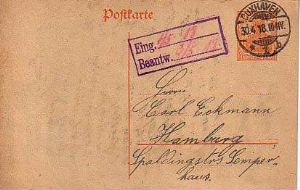 Postkarte
CUXHAVEN
30.4.18.
Eing.
Beantw.
Herrn
Carl Eckmann
Hamburg
Spaldingstr. Semper-
haus.